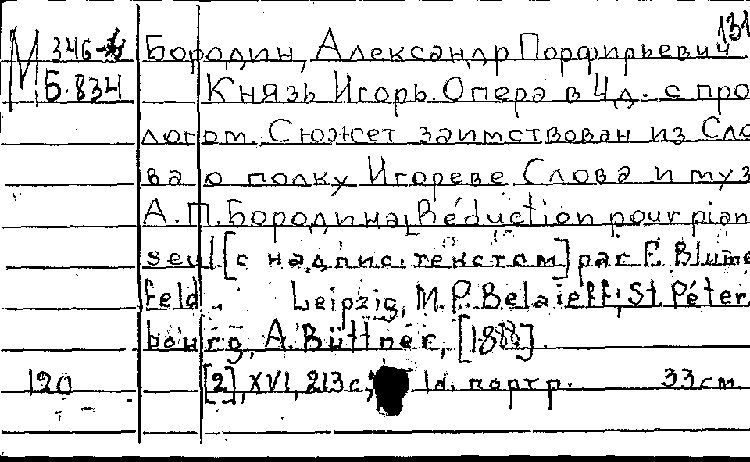 131
М 346-
Б.834
Бородин, Александр Порфирьевич
Князь Игорь. Опера в 4 д. с про
логом. Сюжет заимствован из Сло
ва о полку Игореве. Слова и муз
А.П. Бородина, Réduction pour pian
seul [с надпис. текстом] par F. Blume
feld. Leipzig, M.P. Belaieff; St. Péter
bourg, A. Büttner, [1888].
120 [2], XVI, 213 с., 1 л. портр. 33 см